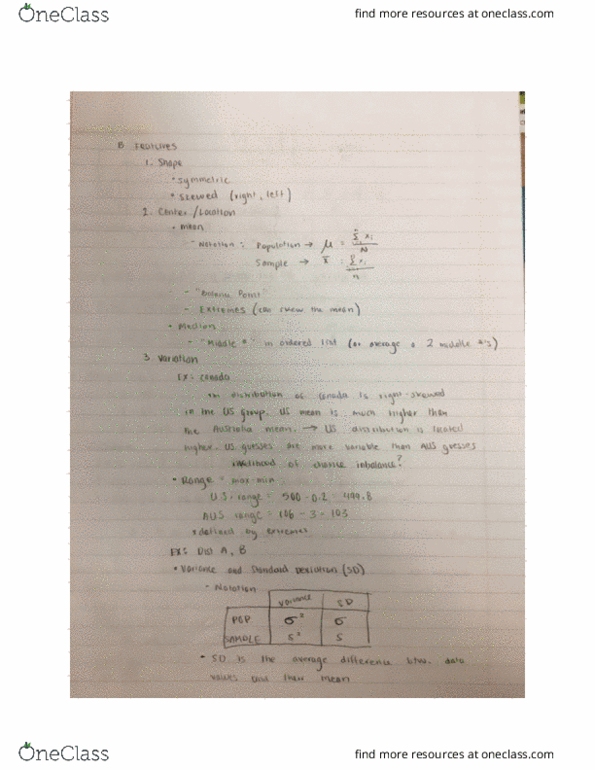 OneClass
find more resources at oneclass.com
B Features
1. Shape
• symmetric
• skewed (right, left)
2. Center/Location
• mean
- Notation: Population → μ = Σ xi / N
Sample → x̄ = Σ xi / n
- "Balance Point"
- Extremes (can skew the mean)
• Median
- "Middle #" in ordered list (or average of 2 middle #s)
3. Variation
Ex: Canada
The distribution of Canada is right-skewed
in the US group. US mean is much higher than
the Australia mean. → US distribution is located
higher. US guesses are more variable than AUS guesses
likelihood of chance imbalance?
• Range = max-min
U.S. range = 500 - 0.2 = 499.8
AUS range = 106 - 3 = 103
*defined by extremes
Ex: Dist A, B
• Variance and Standard Deviation (SD)
- Notation
Variance SD
POP σ² σ
SAMPLE s² s
• SD is the average difference btw. data
values and their mean
OneClass
find more resources at oneclass.com